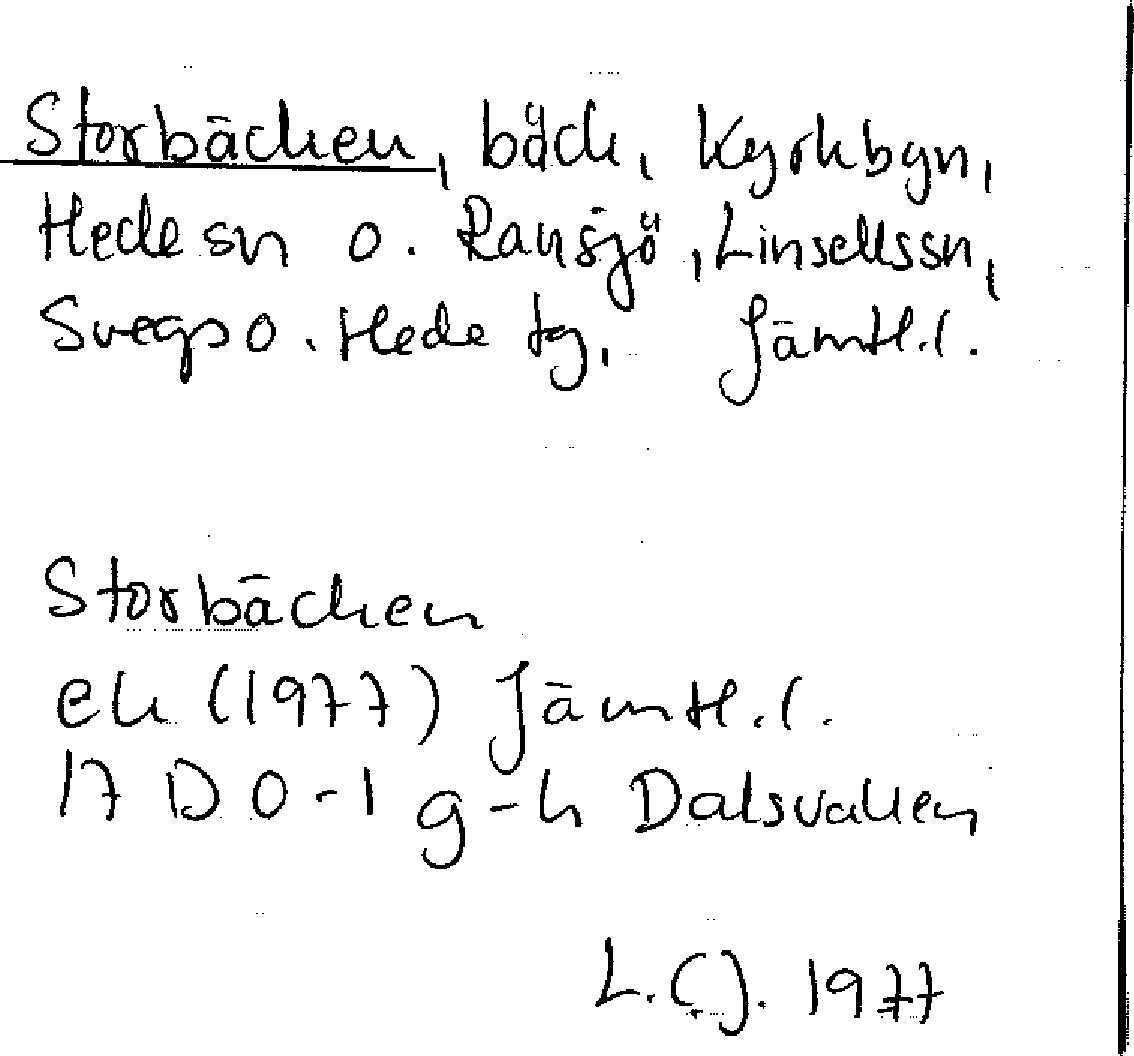 Storbäcken, bäck, Kyrkbyn,
Hede sn o. Ransjö, Linsells sn,
Svegs o. Hede tg, Jämtl.l.
Storbäcken
ek (1977) Jämtl.l.
17 D 0-1 g-h Dalsvallen
L.C.J. 1977